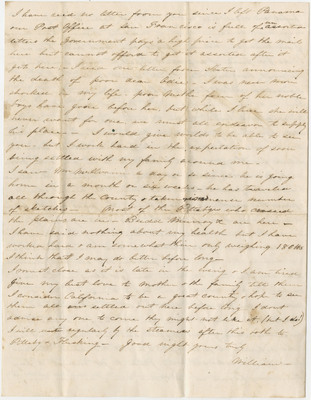 I have recd no letter from you since I left Panama
our Post Office at San Francisco is full of
letters the Government pays a high price to get the mail
but cannot afford to get it assorted after it
gets here. I recd one letter from announcing
the death of poor dear I was never more
shocked in my life poor mother four of her noble
boys have gone before her, but while I live she will
never want for one we must all endeavor to supply
his place — I would give worlds to be able to see
you. but I work hard in the expectation of soon
being settled with my family around me —
I saw Wm a day or so since he is going
home in a month or six weeks — he has travelled
all through the country & taken number
of sketches Most of the who crossed
the plains are in
I have said nothing about my health but I have
worked hard & am somewhat thin only weighing
I think that I may do better before long —
I must close as it is late in the evening & I am tired
Give my best love to mother & the family tell them
I consider California to be a great country & hope to see
them all settled out here before long. I wont
advise any one to come they might not like it (but I do)
I will write regularly by the steamer after this both to
& — Good night yours truly
William —